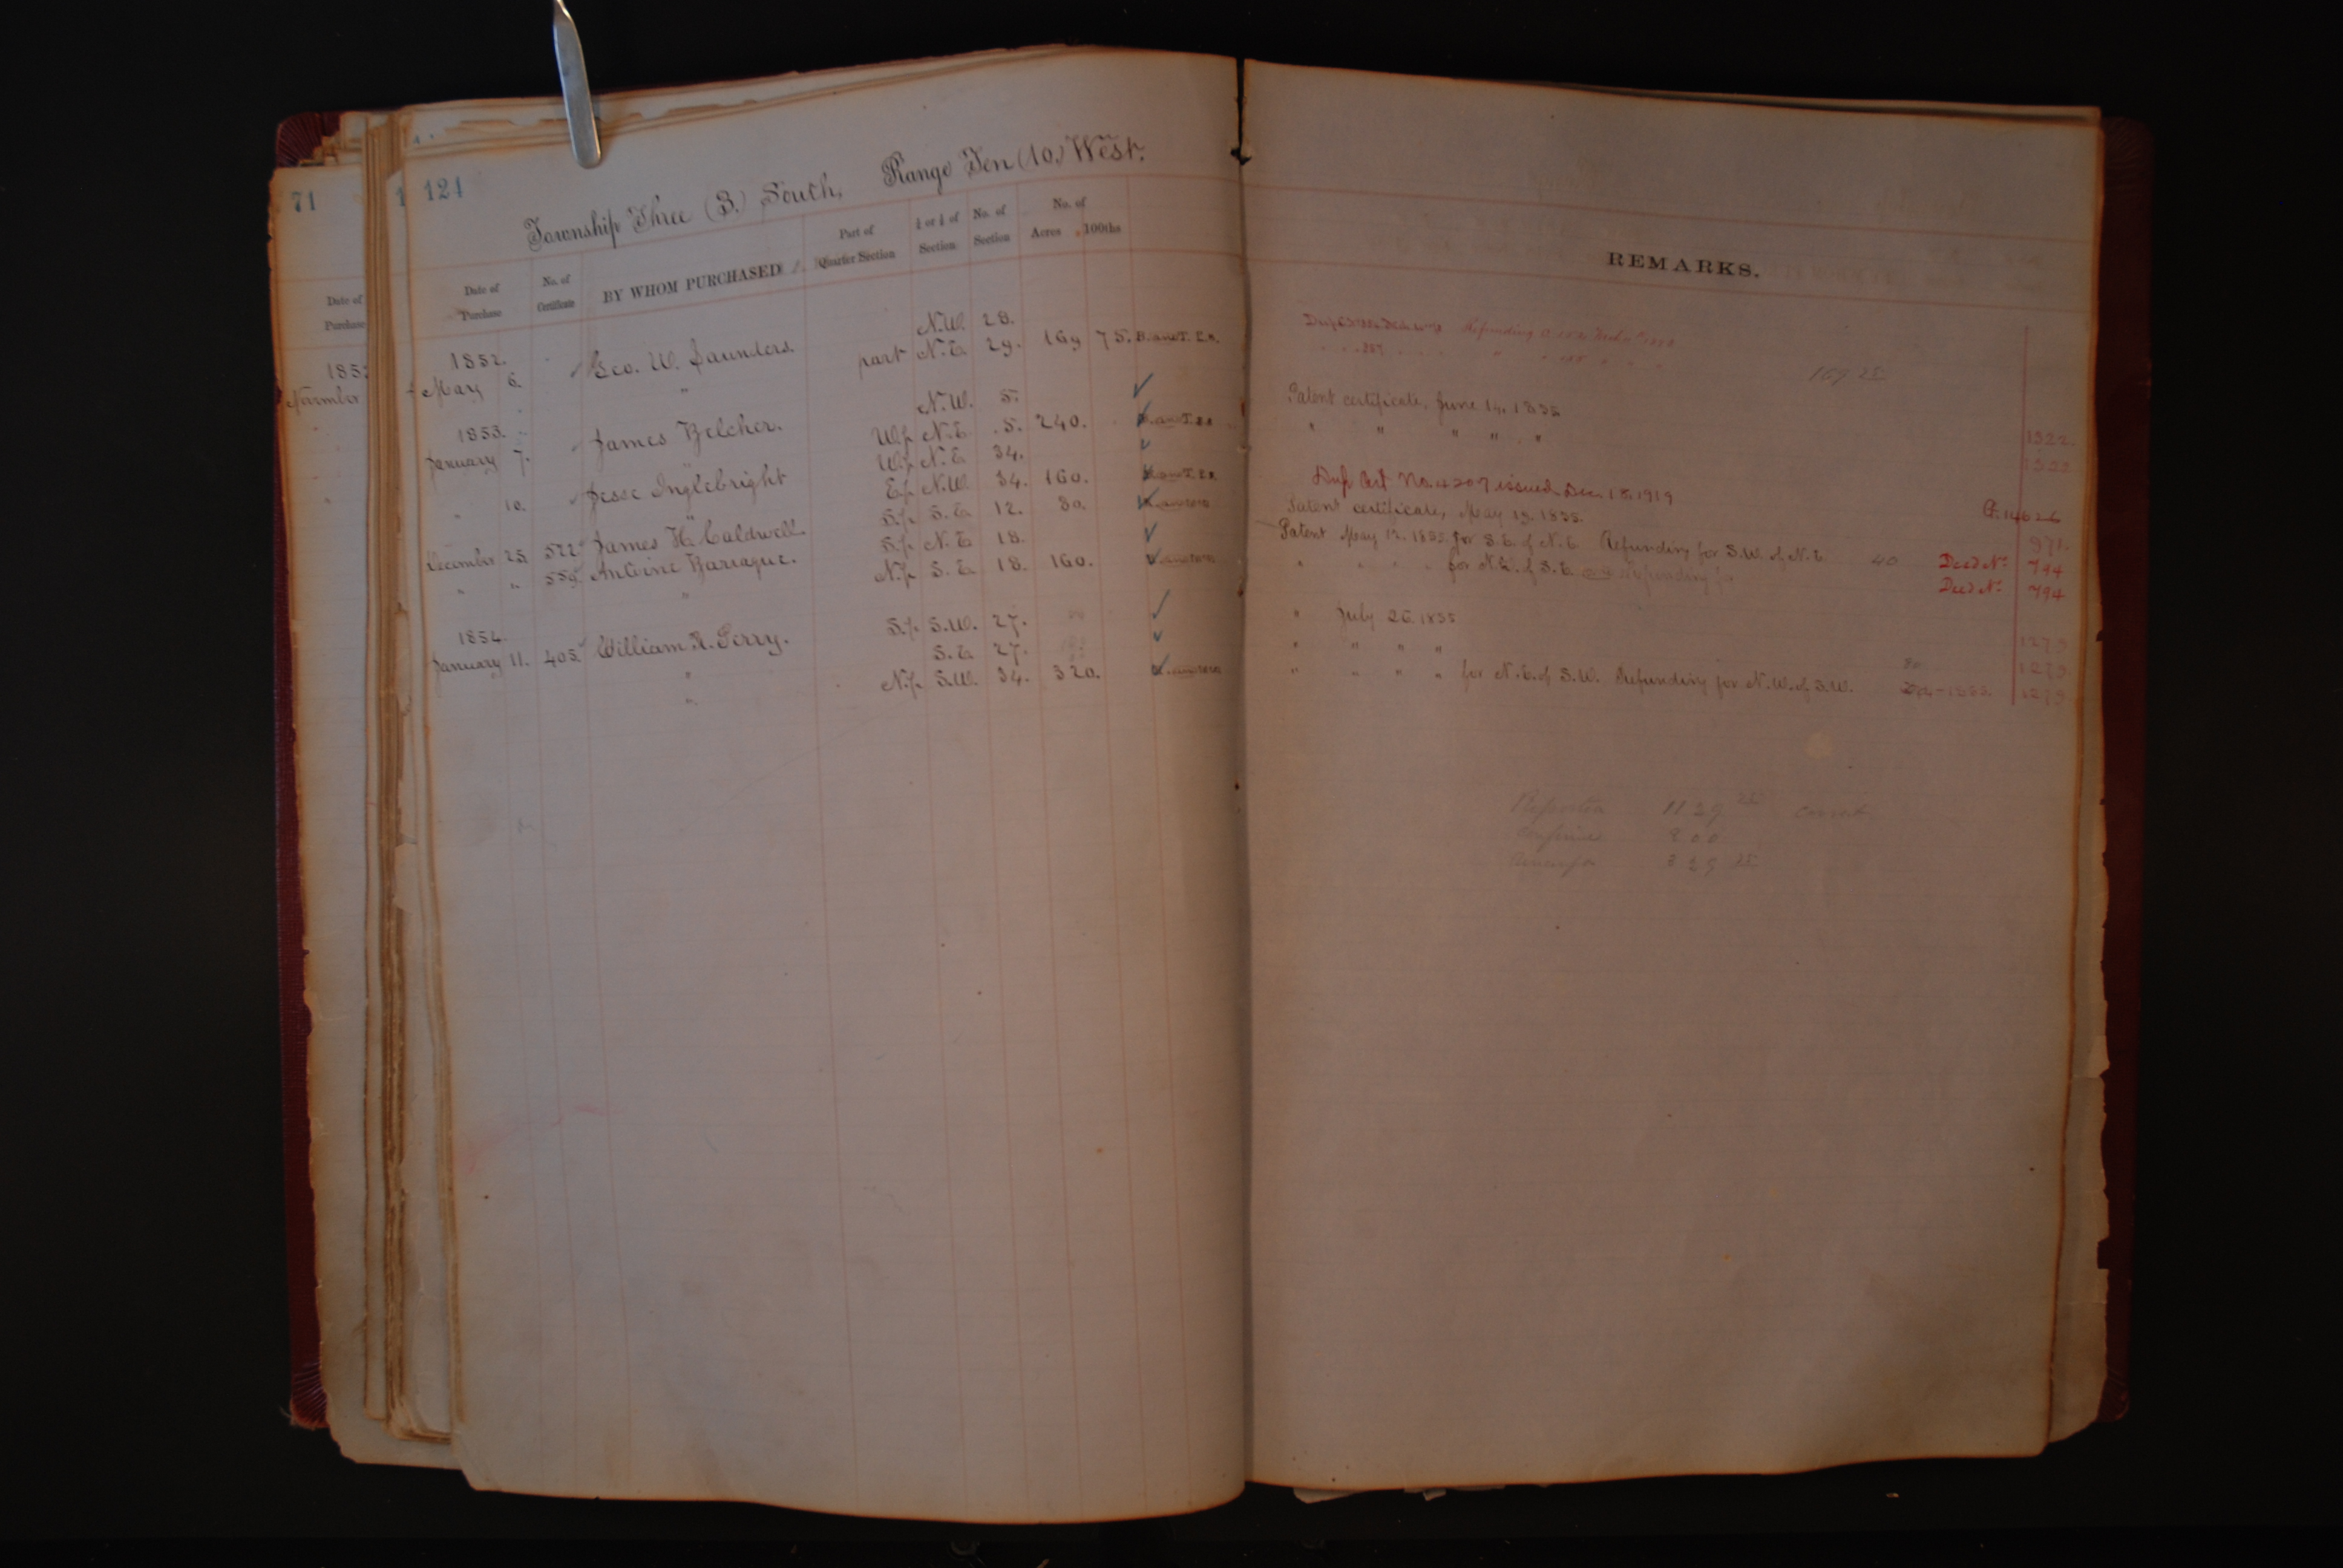 71
124
Township Three (3.) South, Range Ten (10.) West.
Date of Purchase
Date of Purchase
No. of Certificate
BY WHOM PURCHASED
Part of Quarter Section
¼ or ½ of Section
No. of Section
No. of Acres 100ths
REMARKS.
1852. Geo. W. Saunders. N.W. 28.
May 6. " part N.E. 29. 169 75.
169 25
1853. James Belcher. N.W. 5. Patent certificate, June 14, 1855 1322.
January 7. W½ N.E. 5. 240. " " " " " 1322
Jesse Inglebright W½ N.E. 34.
" 10. " E½ N.W. 34. 160. Dup Cert No. 4207 issued Dec. 18, 1919
December 23. 522 James H. Caldwell. S½ S.E. 12. 80. Patent certificate, May 19, 1855. 971.
" " 559. Antoine Barraque. S½ N.E. 18. Patent May 12. 1855. for S.E. of N.E. Refunding for S.W. of N.E. 40 Deed No. 794
" N½ S.E. 18. 160. " " " " for N.E. of S.E. Deed No. 794
1854. William R. Perry. S½ S.W. 27. " July 26. 1855 1279
January 11. 405. " S.E. 27. " " " " 1279
" N½ S.W. 34. 320. " " " " for N.E. of S.W. Refunding for N.W. of S.W. 1279
1129 25 correct
800
329 25